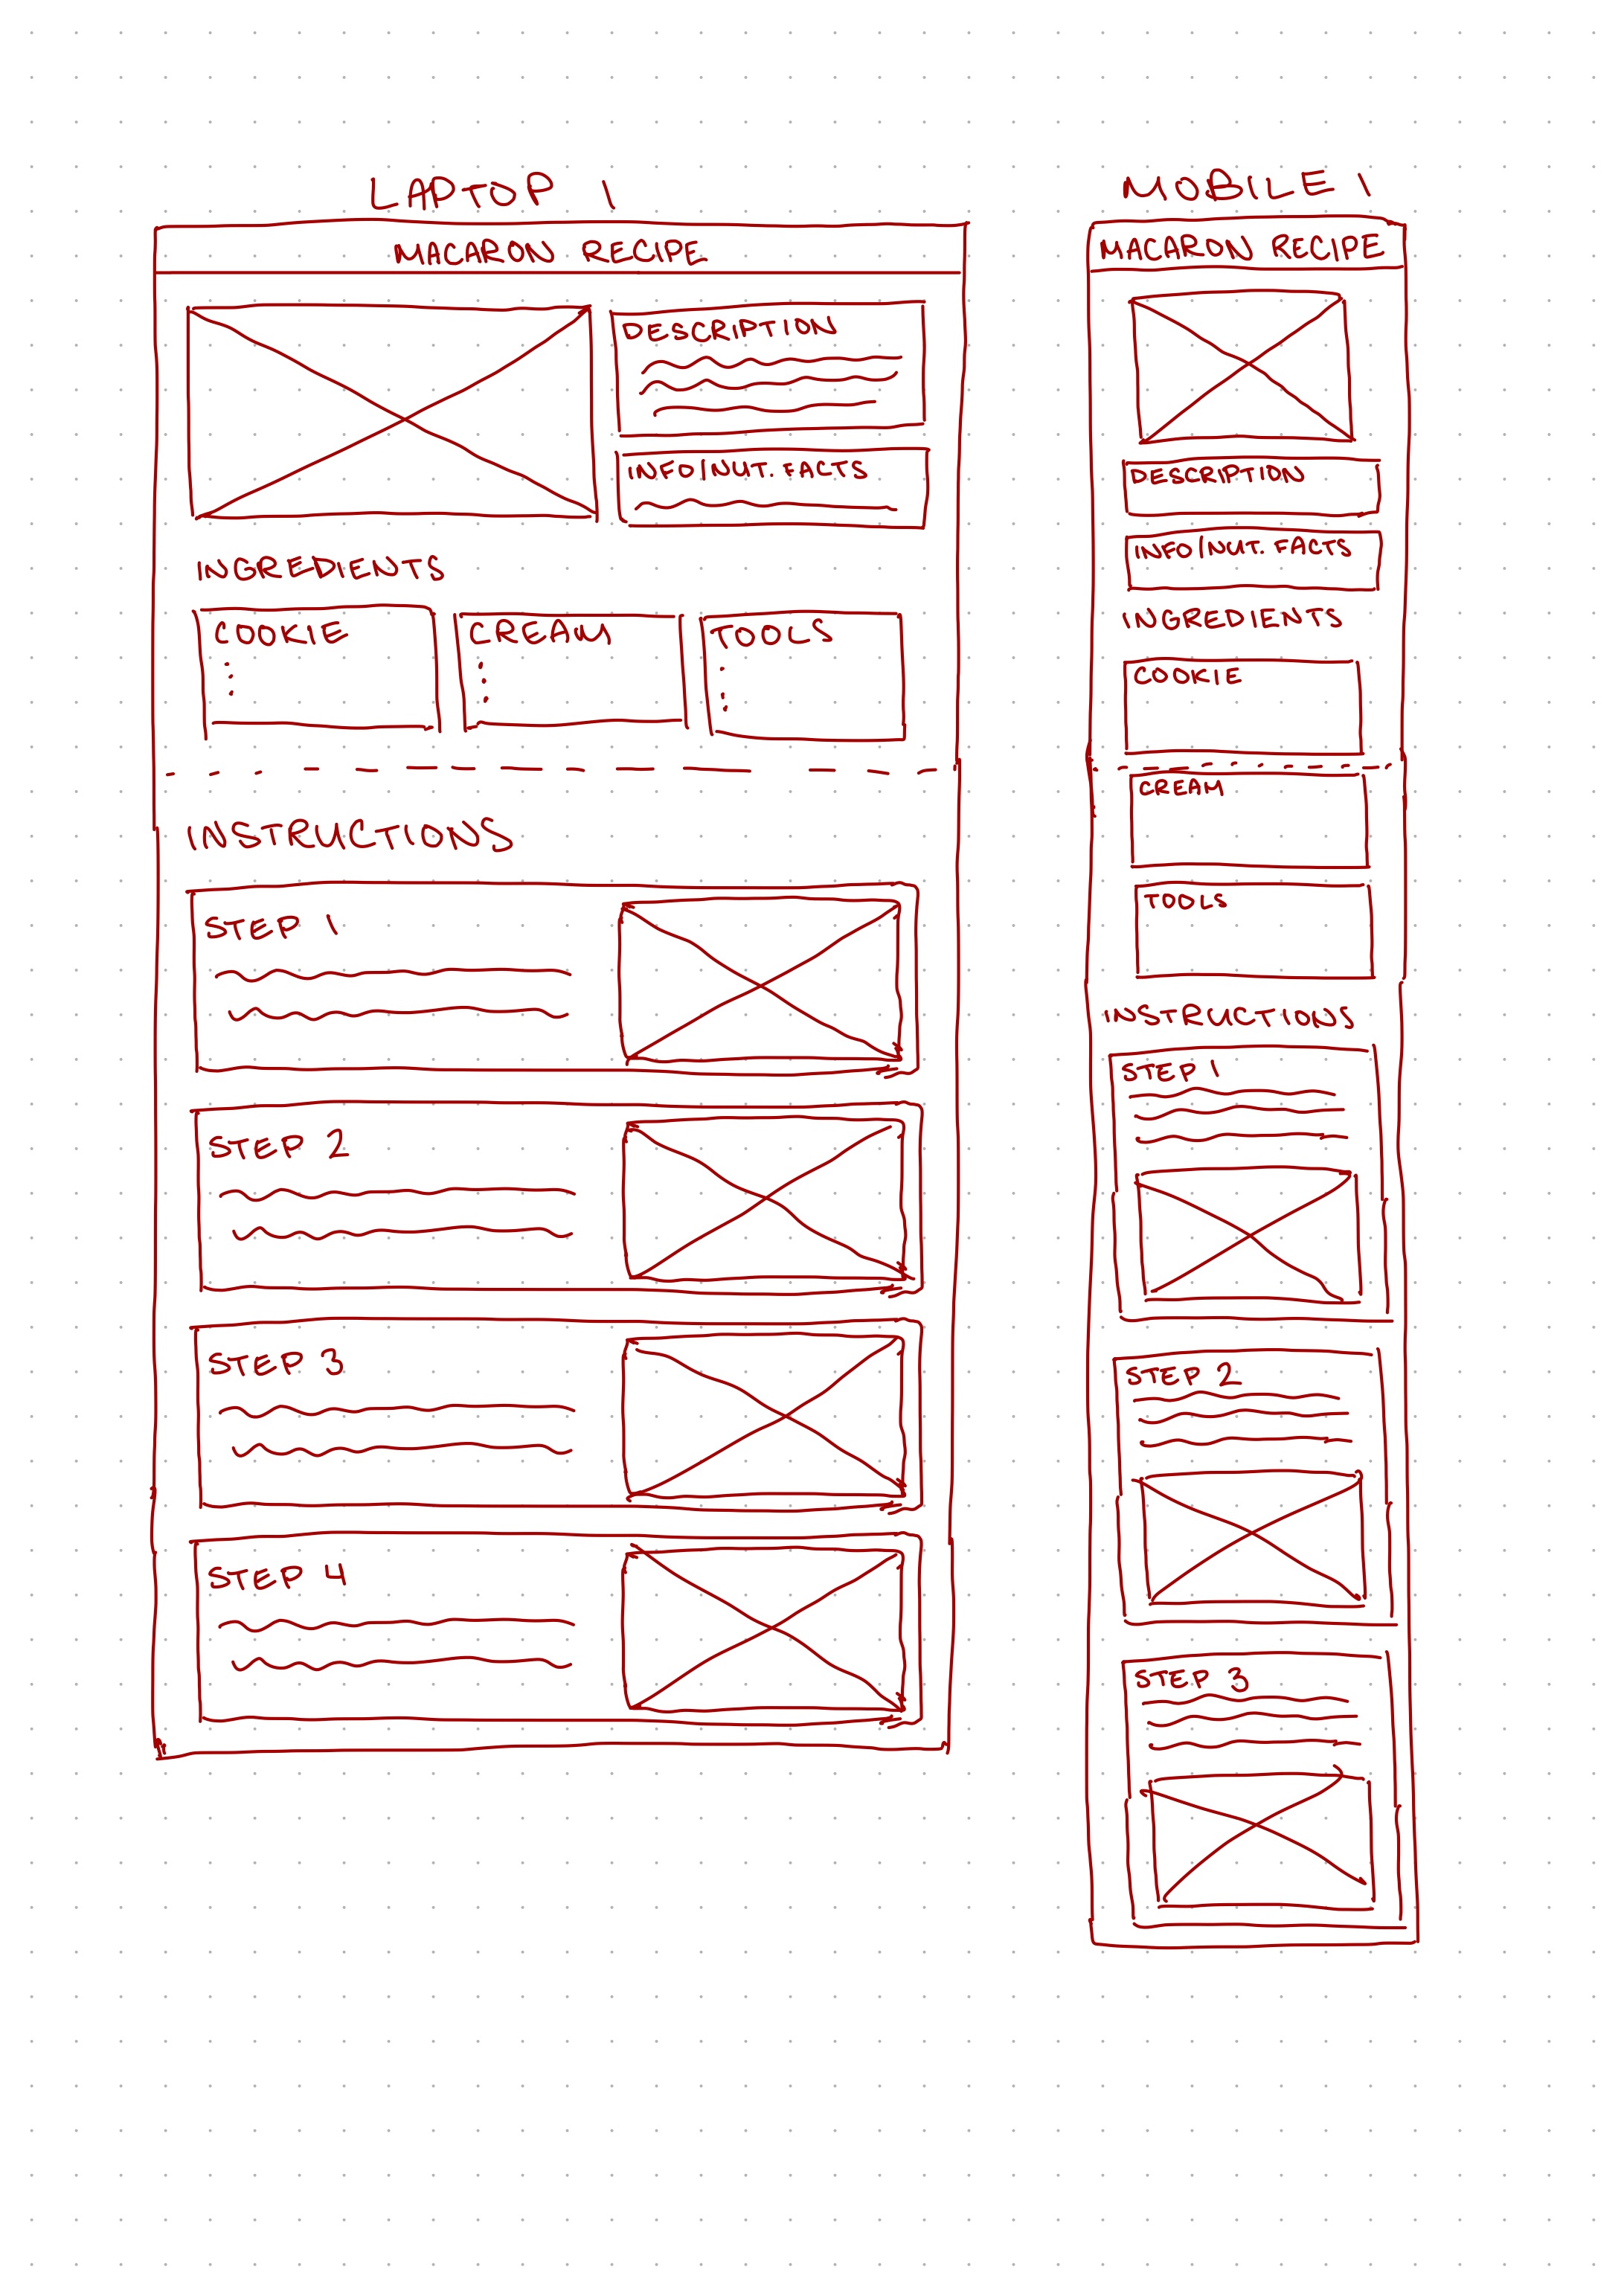 LAPTOP 1
MACARON RECIPE
DESCRIPTION
INFO/NUT. FACTS
INGREDIENTS
COOKIE
CREAM
TOOLS
INSTRUCTIONS
STEP 1
STEP 2
STEP 3
STEP 4
MOBILE 1
MACARON RECIPE
DESCRIPTION
INFO/NUT. FACTS
INGREDIENTS
COOKIE
CREAM
TOOLS
INSTRUCTIONS
STEP 1
STEP 2
STEP 3